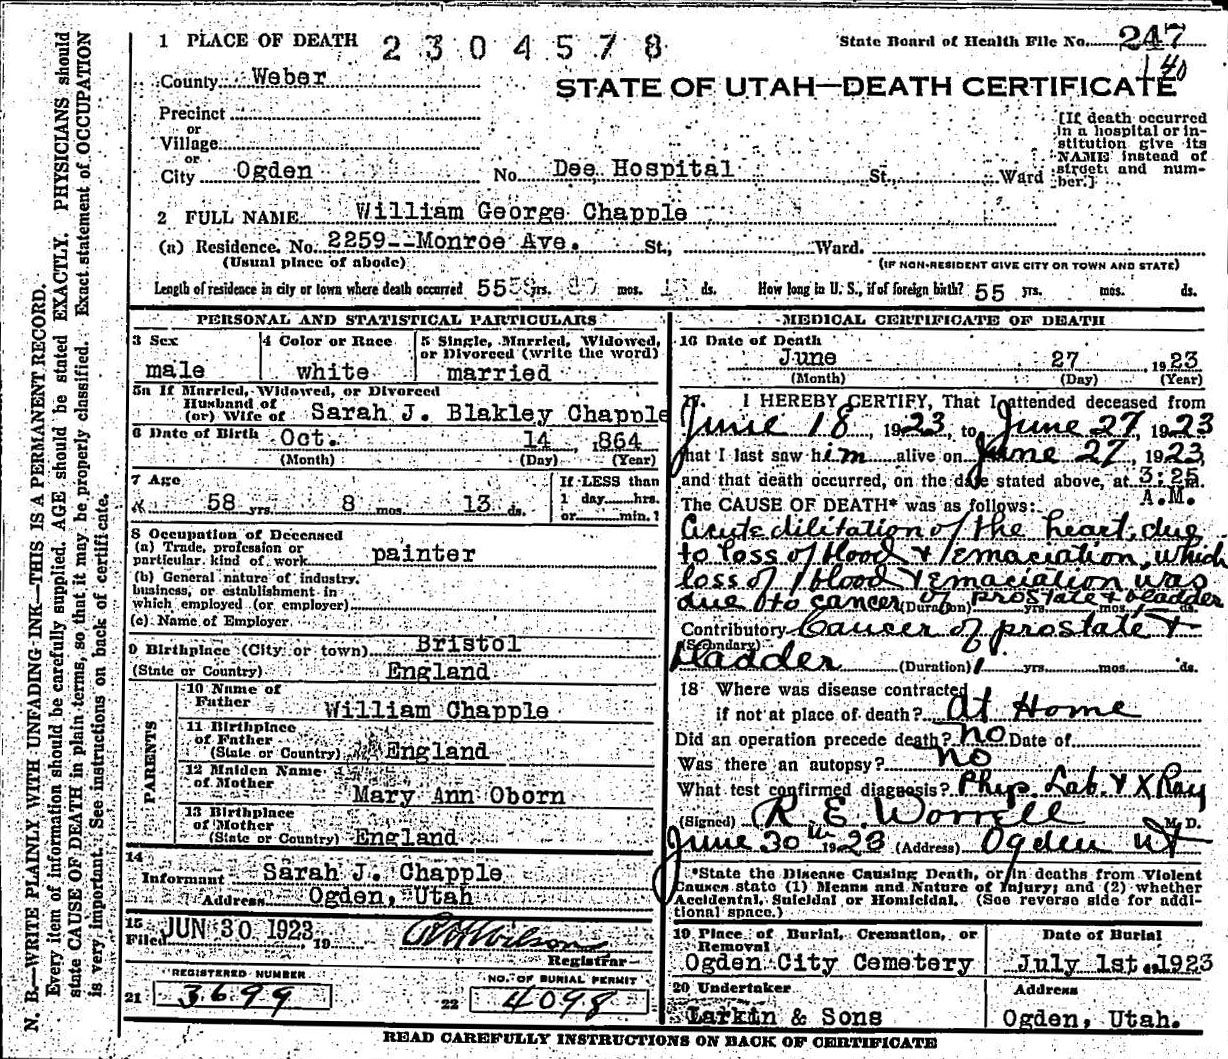 1 PLACE OF DEATH 2304578
State Board of Health File No. 247
140
County Weber
STATE OF UTAH—DEATH CERTIFICATE
Precinct
or
Village
or
City Ogden No. Dee Hospital St., Ward
[If death occurred in a hospital or institution give its NAME instead of street and number.]
2 FULL NAME William George Chapple
(a) Residence. No. 2259--Monroe Ave. St., Ward.
(Usual place of abode) (IF NON-RESIDENT GIVE CITY OR TOWN AND STATE)
Length of residence in city or town where death occurred 55 yrs. mos. ds. How long in U. S., if of foreign birth? 55 yrs. mos. ds.
PERSONAL AND STATISTICAL PARTICULARS
3 Sex
male
4 Color or Race
white
5 Single, Married, Widowed,
or Divorced (write the word)
married
5a If Married, Widowed, or Divorced
Husband of
(or) Wife of Sarah J. Blakley Chapple
6 Date of Birth Oct. 14 , 864
(Month) (Day) (Year)
7 Age
58 yrs. 8 mos. 13 ds.
If LESS than
1 day......hrs.
or......min.?
8 Occupation of Deceased
(a) Trade, profession or
particular kind of work painter
(b) General nature of industry,
business, or establishment in
which employed (or employer)
(c) Name of Employer
9 Birthplace (City or town) Bristol
(State or Country) England
PARENTS
10 Name of
Father William Chapple
11 Birthplace
of Father
(State or Country) England
12 Maiden Name
of Mother Mary Ann Oborn
13 Birthplace
of Mother
(State or Country) England
14
Informant Sarah J. Chapple
Address Ogden, Utah
15
Filed JUN 30 1923, 19
Wilson
Registrar
REGISTERED NUMBER
21 3699
NO. OF BURIAL PERMIT
22 4098
MEDICAL CERTIFICATE OF DEATH
16 Date of Death
June 27 , 1923
(Month) (Day) (Year)
17. I HEREBY CERTIFY, That I attended deceased from
June 18, 1923, to June 27, 1923
that I last saw him alive on June 27, 1923,
and that death occurred, on the date stated above, at 3:25 m.
A.M.
The CAUSE OF DEATH* was as follows:
Acute dilitation of the heart, due
to loss of blood & emaciation, which
loss of blood & emaciation was
due to cancer of prostate & bladder
(Duration) yrs. mos. ds.
Contributory Cancer of prostate &
(Secondary)
bladder (Duration) 1 yrs. mos. ds.
18 Where was disease contracted
if not at place of death? At Home
Did an operation precede death? no Date of
Was there an autopsy? no
What test confirmed diagnosis? Phys. Lab. & X Ray
(Signed) R. E. Worrell M. D.
June 30th 1923 (Address) Ogden Ut
*State the Disease Causing Death, or in deaths from Violent
Causes state (1) Means and Nature of Injury; and (2) whether
Accidental, Suicidal or Homicidal. (See reverse side for additional space.)
19 Place of Burial, Cremation, or
Removal
Ogden City Cemetery
Date of Burial
July 1st. 1923
20 Undertaker
Larkin & Sons
Address
Ogden, Utah.
READ CAREFULLY INSTRUCTIONS ON BACK OF CERTIFICATE
N. B.—WRITE PLAINLY WITH UNFADING INK—THIS IS A PERMANENT RECORD.
Every item of information should be carefully supplied. AGE should be stated EXACTLY. PHYSICIANS should
state CAUSE OF DEATH in plain terms, so that it may be properly classified. Exact statement of OCCUPATION
is very important. See instructions on back of certificate.